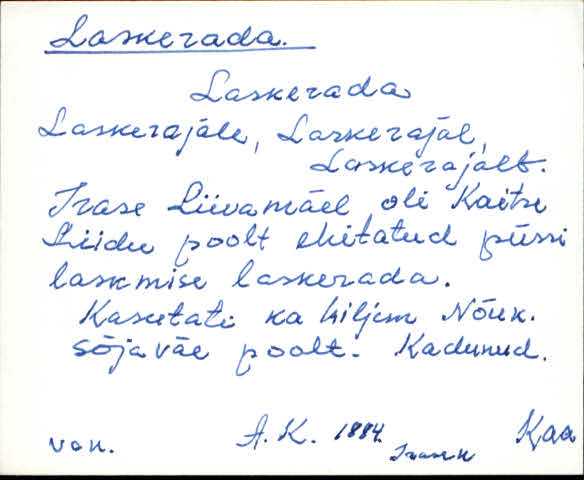 Laskerada.
Laskerada
Laskerajäle, Laskerajäl,
Laskerajält.
Irase Liivamäel oli Kaitse
Liidu poolt ehitatud püssi
laskmise laskerada.
Kasutati ka hiljem Nõuk.
sõjaväe poolt. Kadunud.
van. A. K. 1884. Irase k Kaa